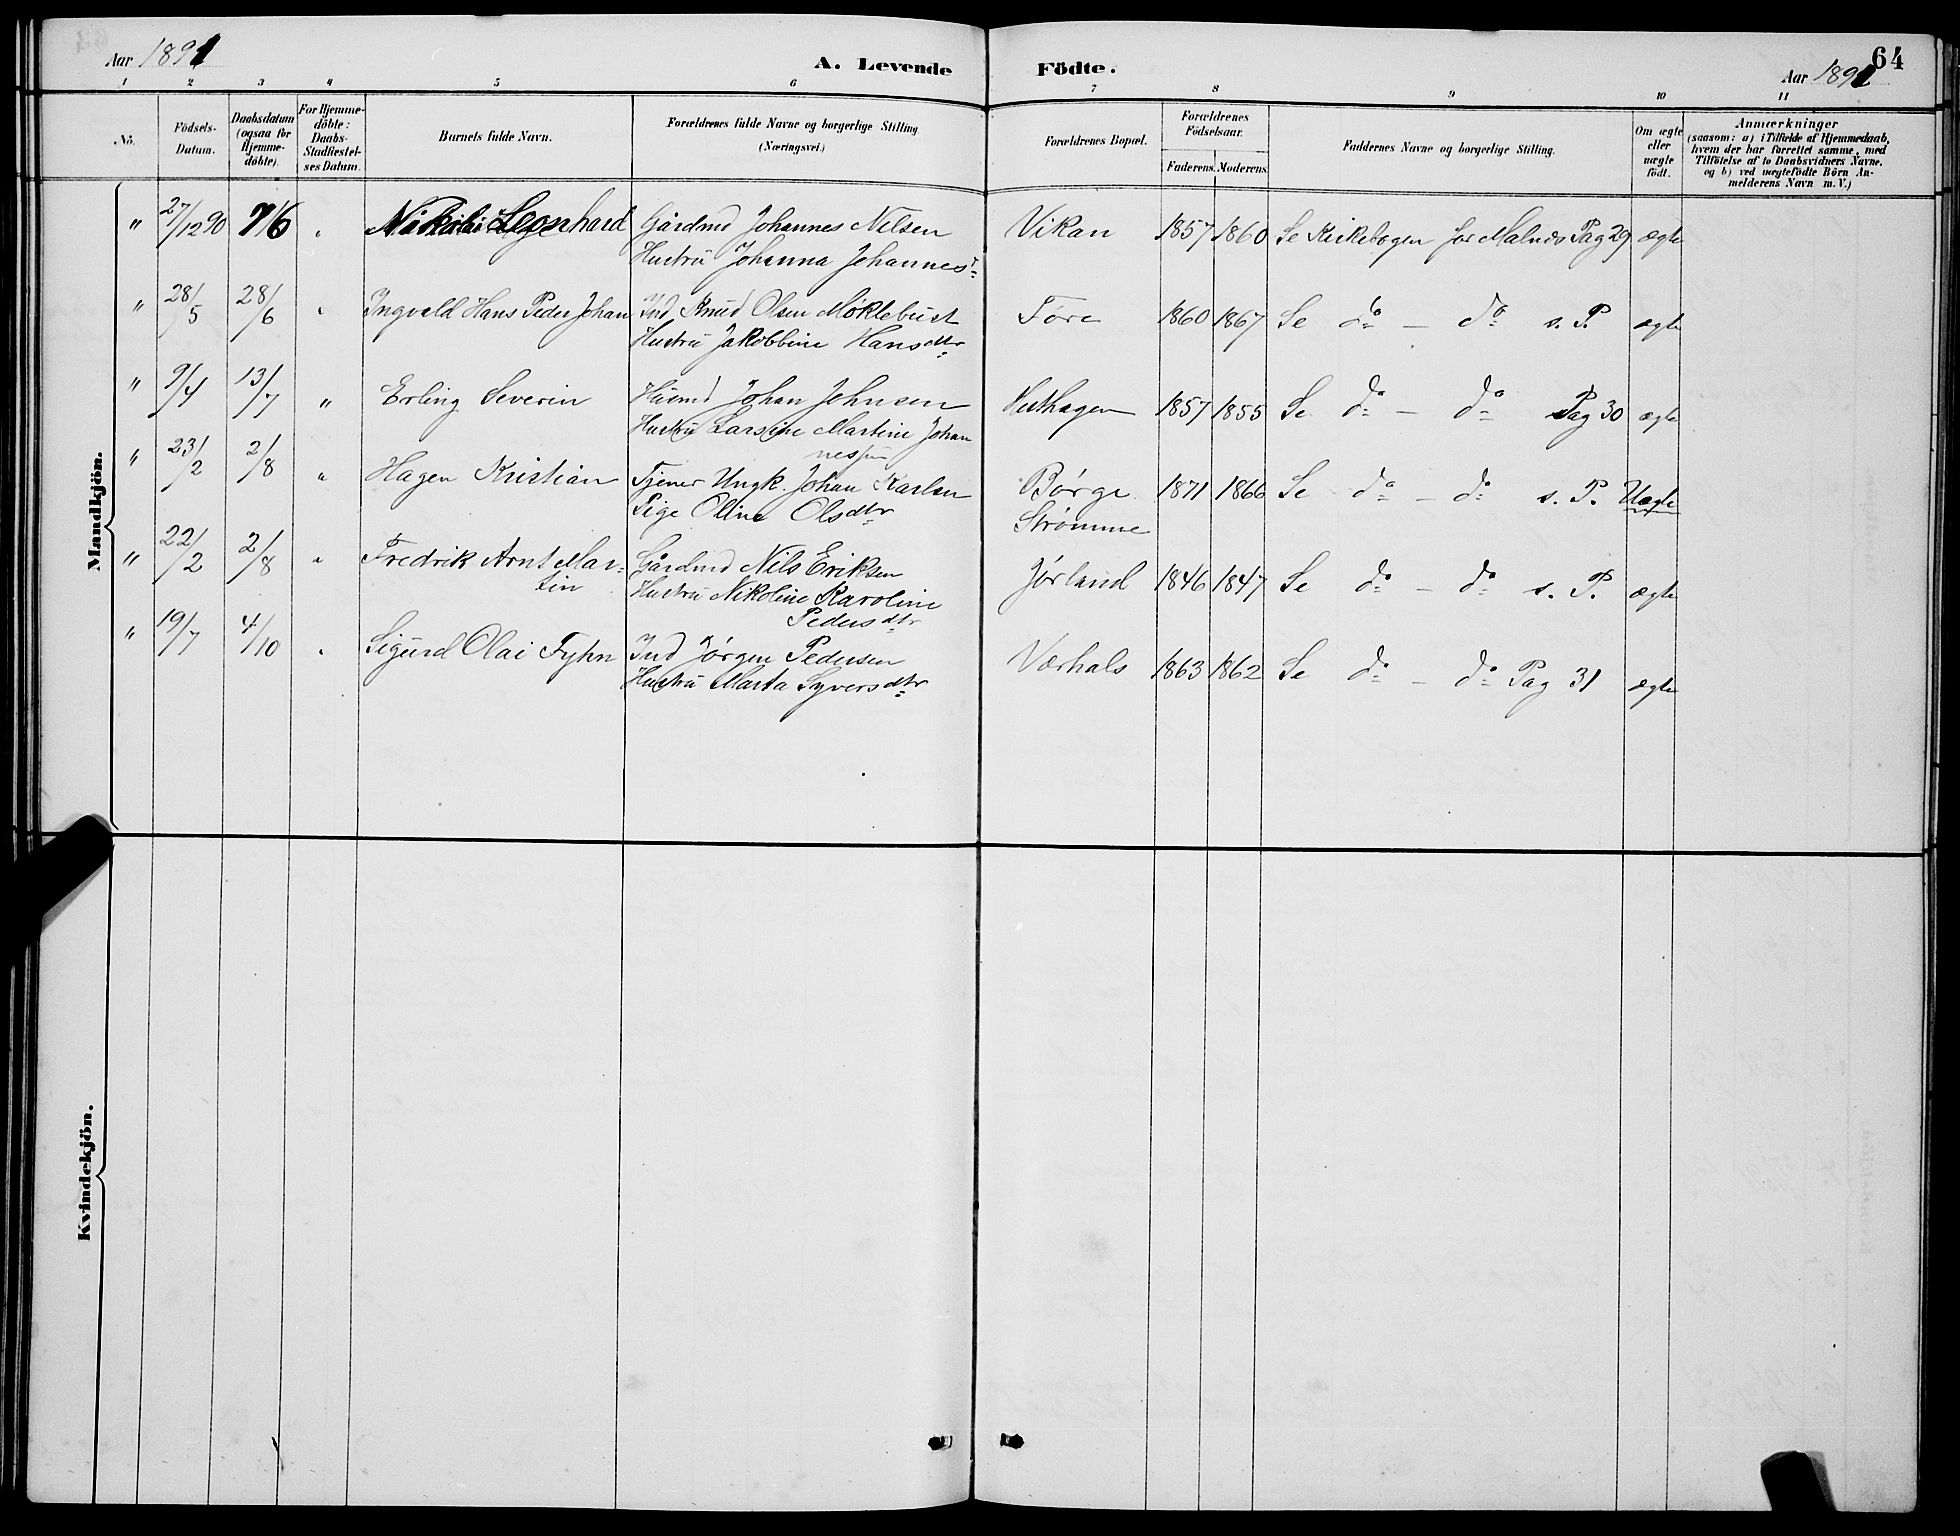 64
Aar 1891
A. Levende Födte.
Aar 1891
1 2 3 4 5 6 7 8 9 10 11
No.
Födsels-
Datum.
Daabsdatum
(ogsaa for
Hjemme-
döbte).
For Hjemme-
döbte:
Daabs-
Stadfæstel-
ses Datum.
Barnets fulde Navn.
Forældrenes fulde Navne og borgerlige Stilling
(Næringsvei.)
Forældrenes Bopæl.
Forældrenes
Födselsaar.
Faderens. Moderens.
Faddernes Navne og borgerlige Stilling.
Om ægte
eller
uægte
födt.
Anmærkninger
(saasom: a) i Tilfælde af Hjemmedaab,
hvem der har forrettet samme, med
Tilföielse af to Daabsvidners Navne,
og b) ved uægtefödte Börn An-
melderens Navn m. V.)
Mandkjön.
" 27/12 90 7/6 " Nikolai Leonhard Gårdmd Johannes Nelsen Vikan 1857 1860 Se Kirkebogen for Malnes Pag 29 ægte
Hustru Johanna Johannesd
" 28/5 28/6 " Ingvald Hans Peder Johan Ind Knud Olsen Møklebust Føre 1860 1867 Se do - do s. P. ægte
Hustru Jakobbine Hansdtr
" 9/4 13/7 " Erling Severin Husmd Johan Johnsen Husthagen 1857 1855 Se do - do Pag 30 ægte
Hustru Larsine Martine Johan
" 23/2 2/8 " Hagen Kristian Tjener Ungk. Johan Karlsen Børge 1871 1866 Se do - do s. P. Uægte
Pige Oline Olsdtr Strømme
" 22/2 2/8 " Fredrik Arnt Mar- Gårdmd Nils Eriksen Jørland 1846 1847 Se do - do s. P. ægte
tin Hustru Nikoline Karoline
Pedersdtr
" 19/7 4/10 " Sigurd Olai Fyhn Ind Jørgen Pedersen Værhals 1863 1862 Se do - do Pag 31 ægte
Hustru Marta Syversdtr
Kvindekjön.